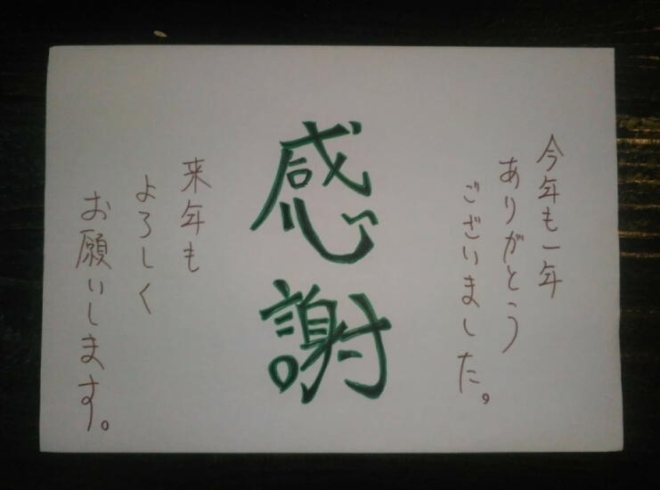 今年も一年
ありがとう
ございました。
感謝
来年も
よろしく
お願いします。